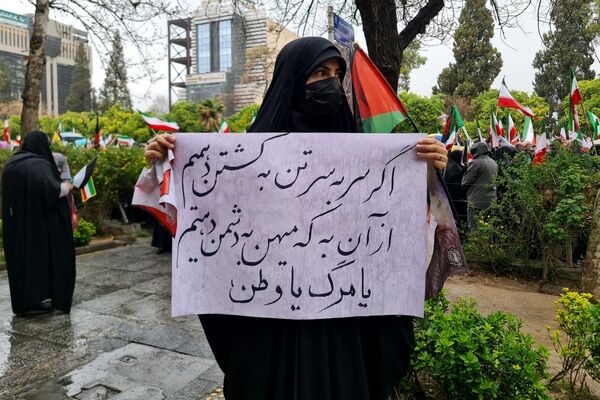 اگر سر به سر تن به کشتن دهیم
از آن به که میهن به دشمن دهیم
یا مرگ یا وطن